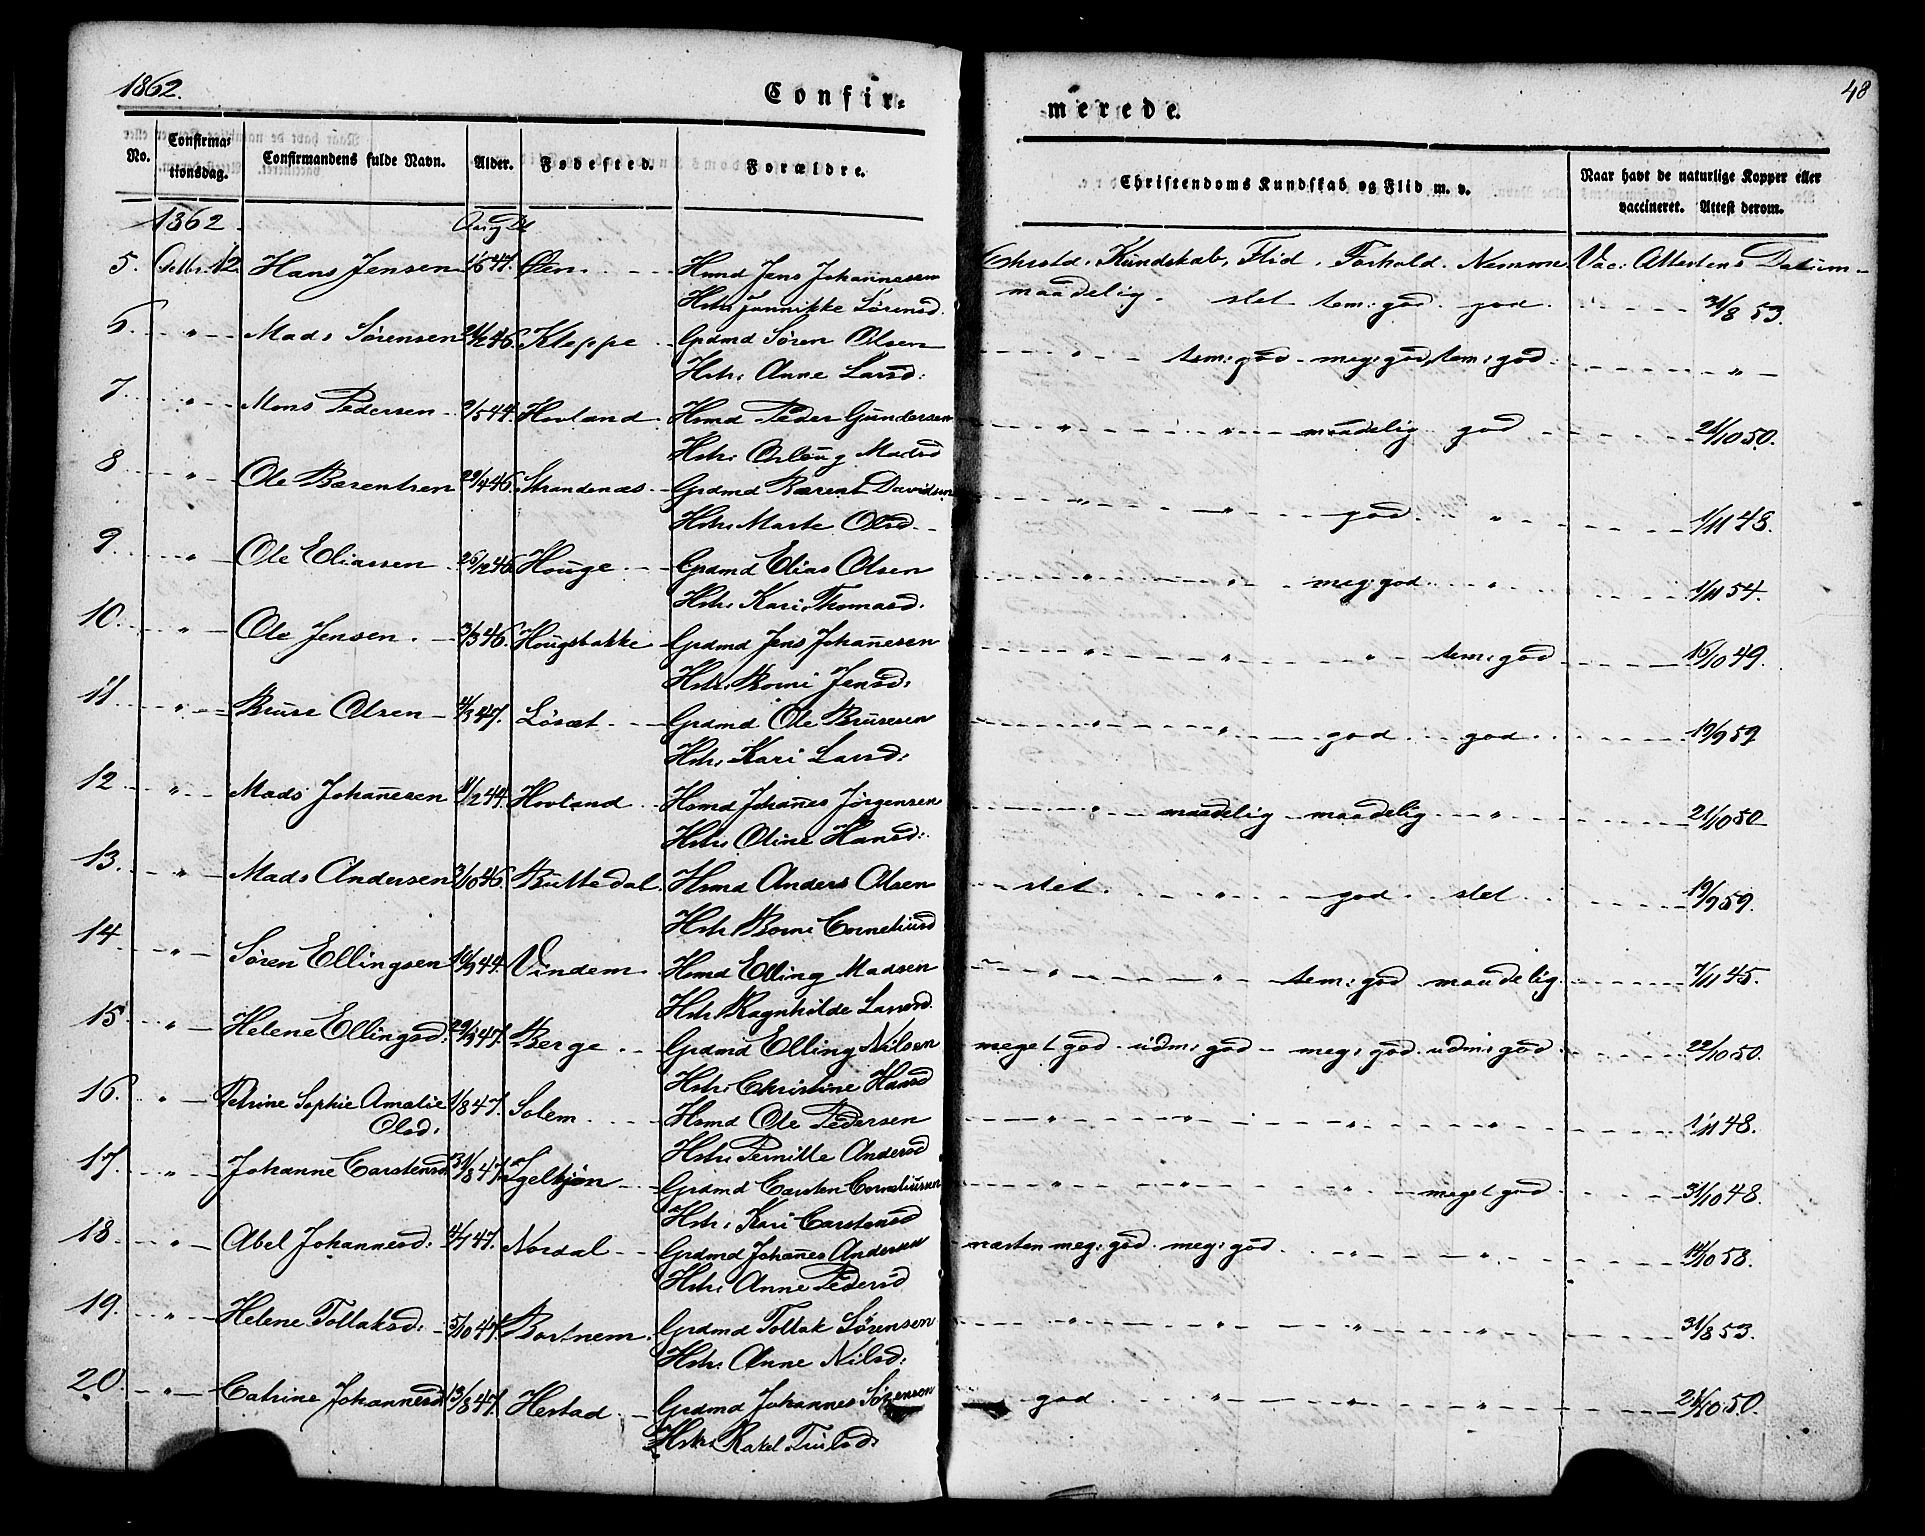 1862.
Confir=
merede.
48
No.
Confirma=
tionsdag.
Confirmandens fulde Navn.
Alder.
Fødested.
Forældre.
Christendoms Kundskab og Flid m. v.
Naar havt de naturlige Kopper eller
vaccineret. Attest derom.
1862.
5. Octbr. 12 Hans Jensen 47. Øen Hmd Jens Johannesen Christd. Kundskab, Flid, Forhold. Nemme Vac: Attestens Datum
Hstr Jannikke Sørensd. maadelig slet tem: god god 31/8 53.
6. " Mads Sørensen 46. Kleppe Grdmd Søren Olsen
" tem: god meg: god, tem: god "
Hstr. Anne Larsd:
7. " Mons Pedersen /5 44. Hovland Hsmd Peder Gundersen
" " maadelig god 21/10 50.
Hstr. Madsd
8. " Ole Barentsen 29/4 46. Strandenæs Grdmd Barent Davidsen
" " god " 1/11 48.
Hstr. Marte Olsd.
9. " Ole Eliassen 26/2 46. Houge Grdmd Elias Olsen
" " meg: god " 1/11 54.
Hstr. Kari Thomasd.
10. " Ole Jensen 3/3 46. Hougsbakke Grdmd Jens Johanesen
" " " tem: god 16/10 49.
Hstr. Borni Jensd:
11 " Bruse Olsen /3 47. Løsæt Grdmd Ole Brusesen
" " god god 19/9 59
Hstr. Kari Larsd:
12 " Mads Johanesen 11/2 44. Hovland Hsmd Johanes Jørgensen
" maadelig maadelig " 21/10 50
Hstr. Oline Hansd:
13. " Mads Andersen /10 46. Buttedal Hsmd Anders Olsen
slet " god slet 19/9 59.
Hstr. Borni Corneliusd
14 " Søren Ellingsen 16/9 44. Vindem Hsmd Elling Madsen
" " tem: god maadelig 7/11 45.
Hstr. Ragnhilde Larsd.
15 " Helene Ellingsd: 29/3 47. Berge Grdmd Elling Nilsen
meget god udm: god meg: god udm: god 22/10 50.
Hstr. Christine Hansd
16. " Petrine Sophie Amalie 1/8 47. Solem Hsmd Ole Pedersen
Olsd:
" " " " 1/11 48.
Hstr. Pernille Andersd
17. " Johanne Carstensd 31/8 47. Igelkjøn Grdmd Carsten Corneliussen
" " " meget god 31/10 48.
Hstr. Kari Carstensd
18. " Abel Johannesd: 4/7 47. Nordal Grdmd Johanes Andersen
næsten meg: god meg: god " " 14/10 58.
Hstr. Anne Pedersd
19. " Helene Tollaksd: 5/10 47. Bortnem Grdmd Tollak Sørensen
" " " " 31/8 53.
Hstr. Anne Nilsd:
20. " Catrine Johannesd 13/8 47. Hestad Grdmd Johannes Sørensen
god " " " 21/10 50.
Hstr. Rakel Trulsd: